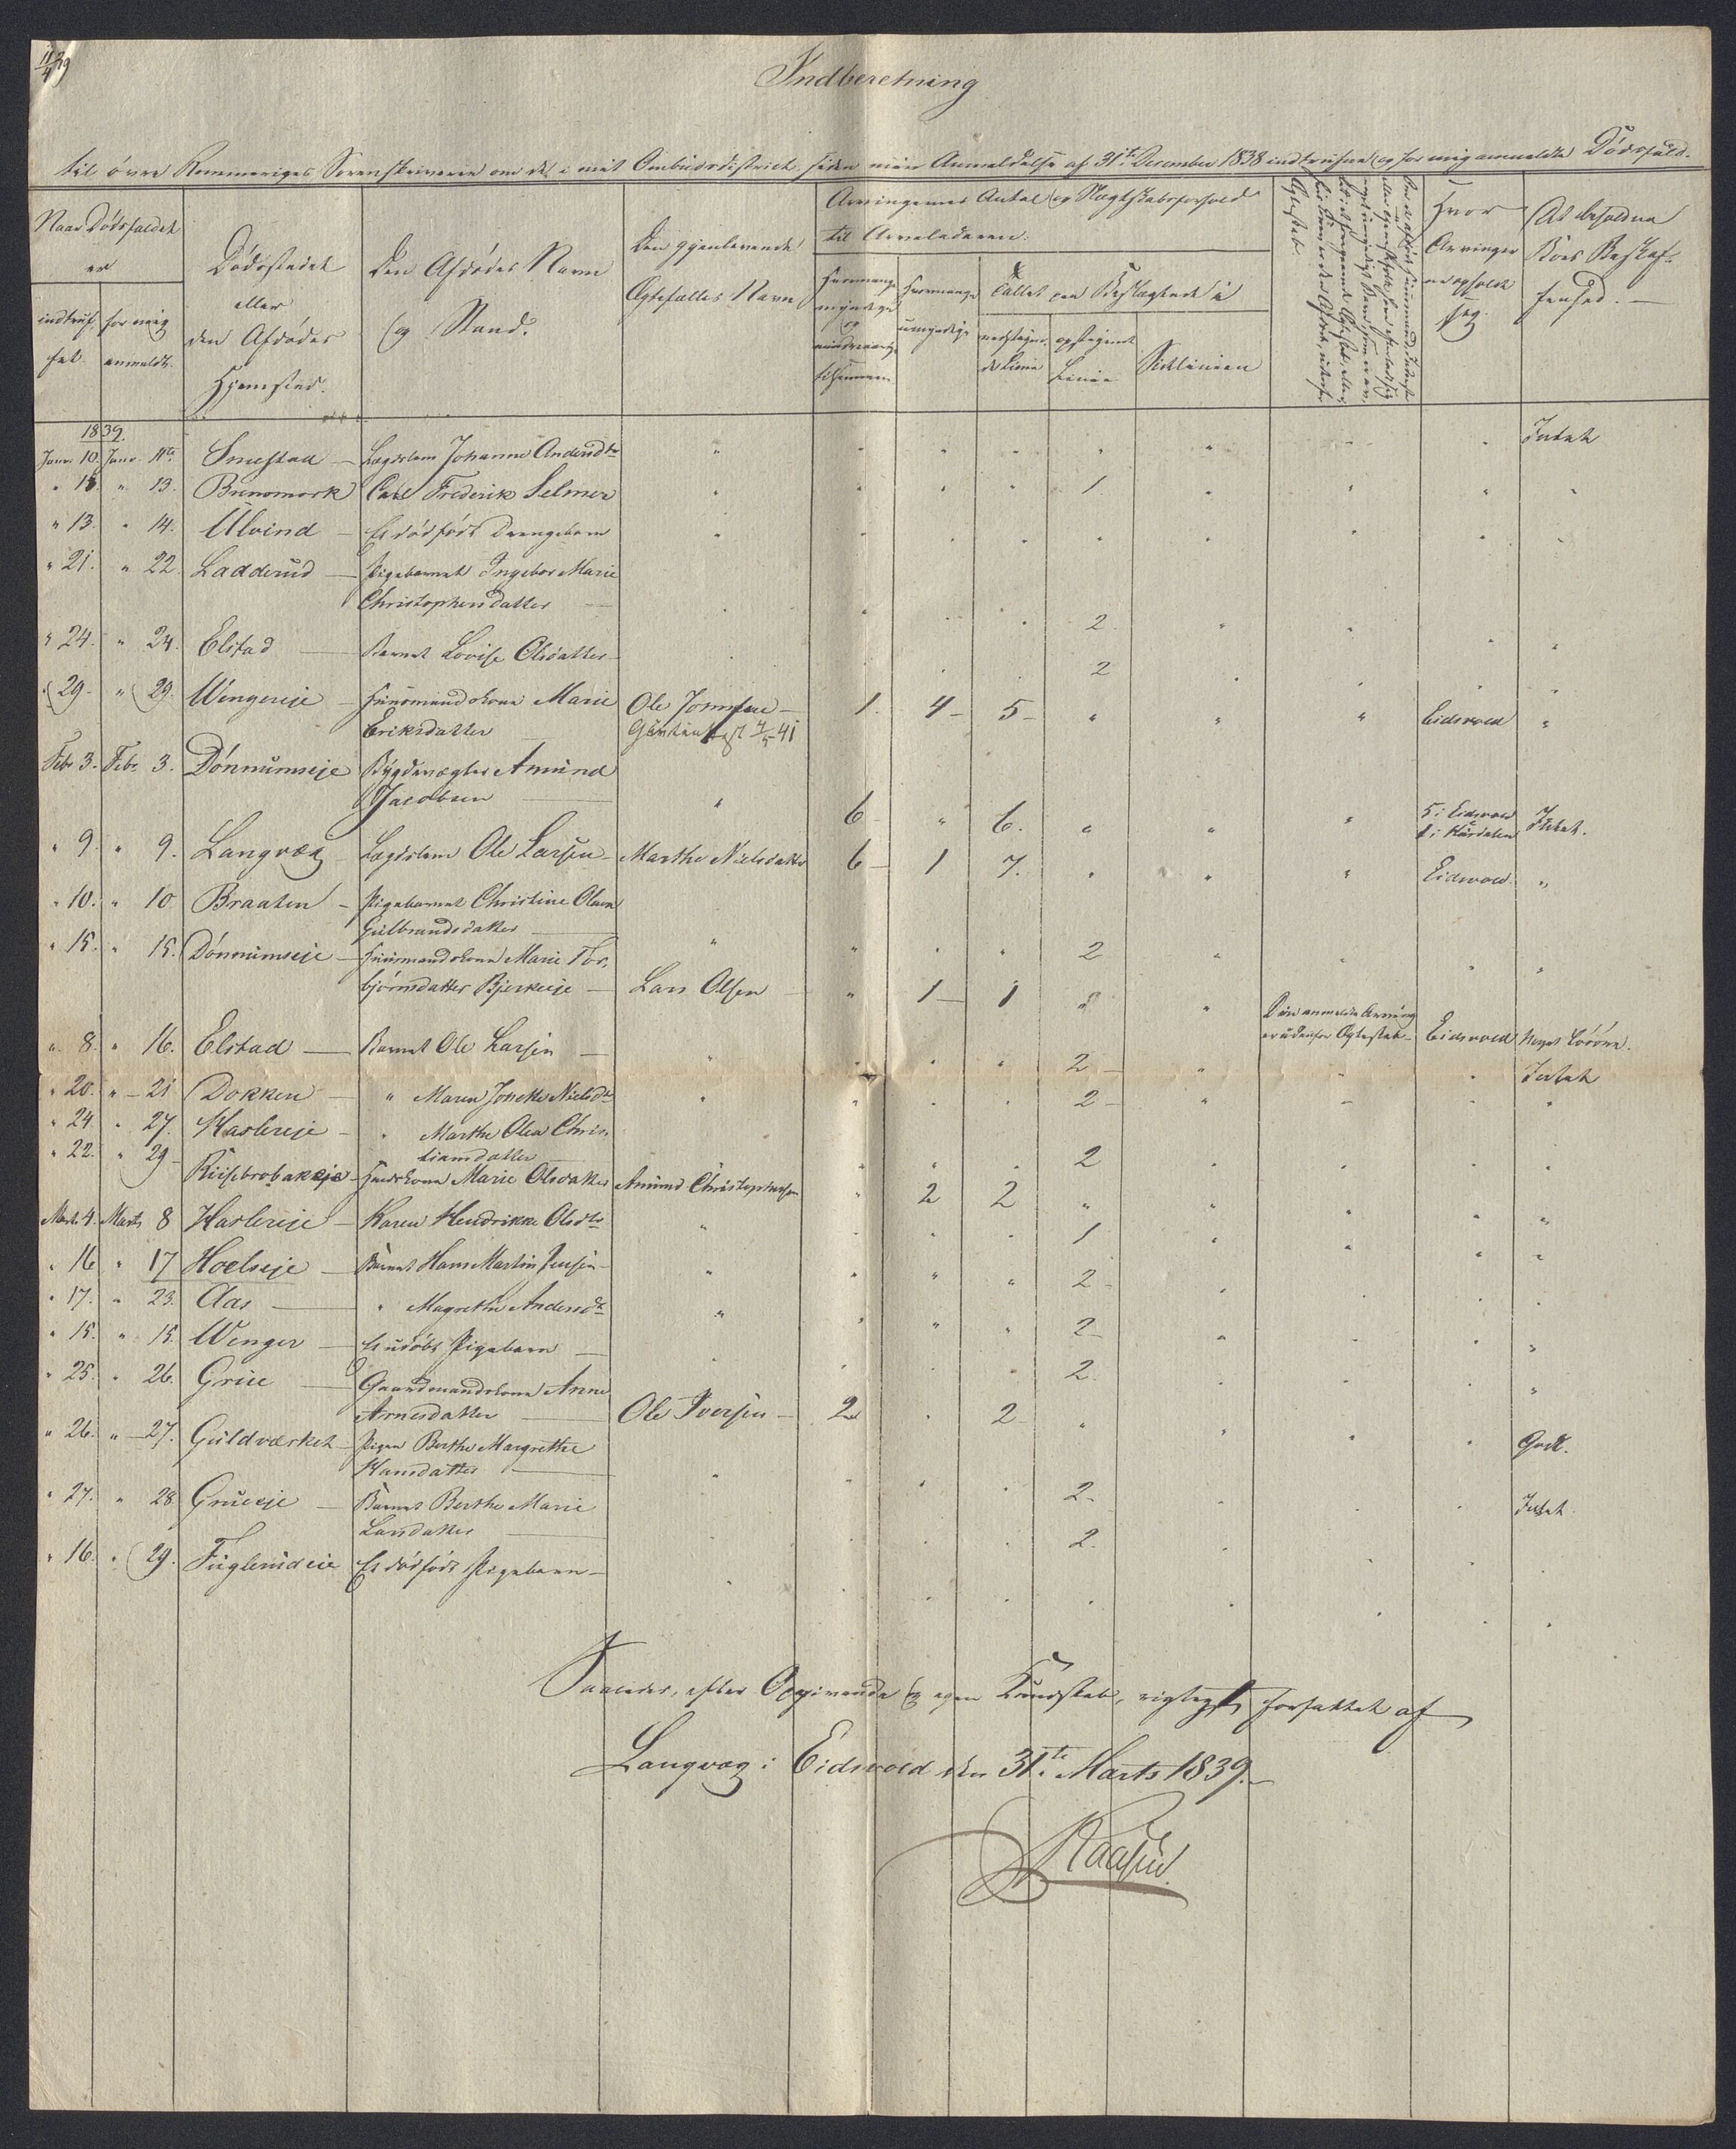 11/4 39
Indberetning
til övre Rommeriges Sorenskriveren om de i mit Ombudsdistrict siden min Anmeldelse af 31te December 1838 indtrufne og for mig anmeldte Dödsfald.
Naar Dödsfaldet
er
indtruf-
fet
for mig
anmeldt.
Dödsstedet
eller
den Afdödes
Hjemsted.
Den Afdödes Navn
og Stand.
Den gjenlevende
Ægtefælles Navn
Arvingernes Antal og Slægtskabsforhold
til Arveladeren.
Hvormange
myndige
og
Hvormange
umyndige
Tallet paa Beslægtede i
nedstigen-
de Linie
opstigende
Linie
Sidelinien
Hvor
Arvinger
ne opholde
sig.
Det befundne
Boes Beskaf-
fenhed.
1839.
Janr. 10. Janr. 11te Smestad Lægdslem Johanne Andersdtr " " " " " " " " Intet
" 13. Brensmork Carl Frederik Selmer " " " " 1. " " " "
" 13. " 14. Ulvind Et dödfödt Drengebarn " " " " " " " " "
" 21. " 22. Ladderud Pigebarnet Ingebor Marie
Christophersdatter " " " " 2. " " " "
" 24. " 24. Elstad Barnet Lovise Olsdatter " " " " 2 " " " "
" 29. " 29. Wengereje Huusmandskone Marie
Eriksdatter Ole Jonsen 1. 4 5 " " " Eidsvold "
Febr 3. Febr. 3. Dönnumseje Bygdevægter Amund
Jacobsen " 6 " 6. " " " 5 i Eidsvold
1 i Hurdalen Intet.
" 9. " 9. Langvæg Lægdslem Ole Larsen Marthe Nielsdatter 6 1 7. " " " Eidsvold "
" 10. " 10. Braaten Pigebarnet Christine Olava
Gulbrandsdatter " " " " 2 " " " "
" 15. " 15. Dönnumseje Huusmandskone Marie Tor-
björnsdatter Bjerkeeje Lars Olsen " 1 1 " " Den anmeldte Arving
er udenfor Ægteskab Eidsvold Noget Lösöre.
" 8. " 16. Elstad Barnet Ole Larsen " " " " 2 " " " Intet
" 20. " 21 Dokken " Maren Nielsdtr " " " " 2 " " " "
" 24 " 27. Haslereje " Marthe Olea Chris-
tiansdatter " " " " 2 " " " "
" 22. " 29 Huuskone Marie Olsdatter Amund Christophersen " 2 2 " " " " "
Marts 4. Marts 8 Haslereje Karen Hendrikke Olsdtr " " " " 1 " " " "
" 16 " 17 Hoelseje Barnet Hans Martin Jensen " " " " 2 " " " "
" 17. " 23. Aas " Magrethe Andersdtr " " " " 2 " " " "
" 15. " 15. Wenger Et udöbt Pigebarn " " " " 2. " " " "
" 25. " 26. Grue Gaardmandskone Anne
Arnesdatter Ole Iversen 2 " 2 " " " " Godt.
" 26. " 27. Guldværket Pigen Berthe Margrethe
Hansdatter " " " " 2. " " " Intet.
" 27. " 28. Grueeje Barnet Berthe Marie
Larsdatter " " " " 2. " " " "
" 16. " 29. Fuglerudeie Et dödfödt Pigebarn " " " " " " " " "
Saaledes, efter Opgivende og egen Kundskab, rigtigst forfattet af
Langvæg i Eidsvold den 31te Marts 1839.